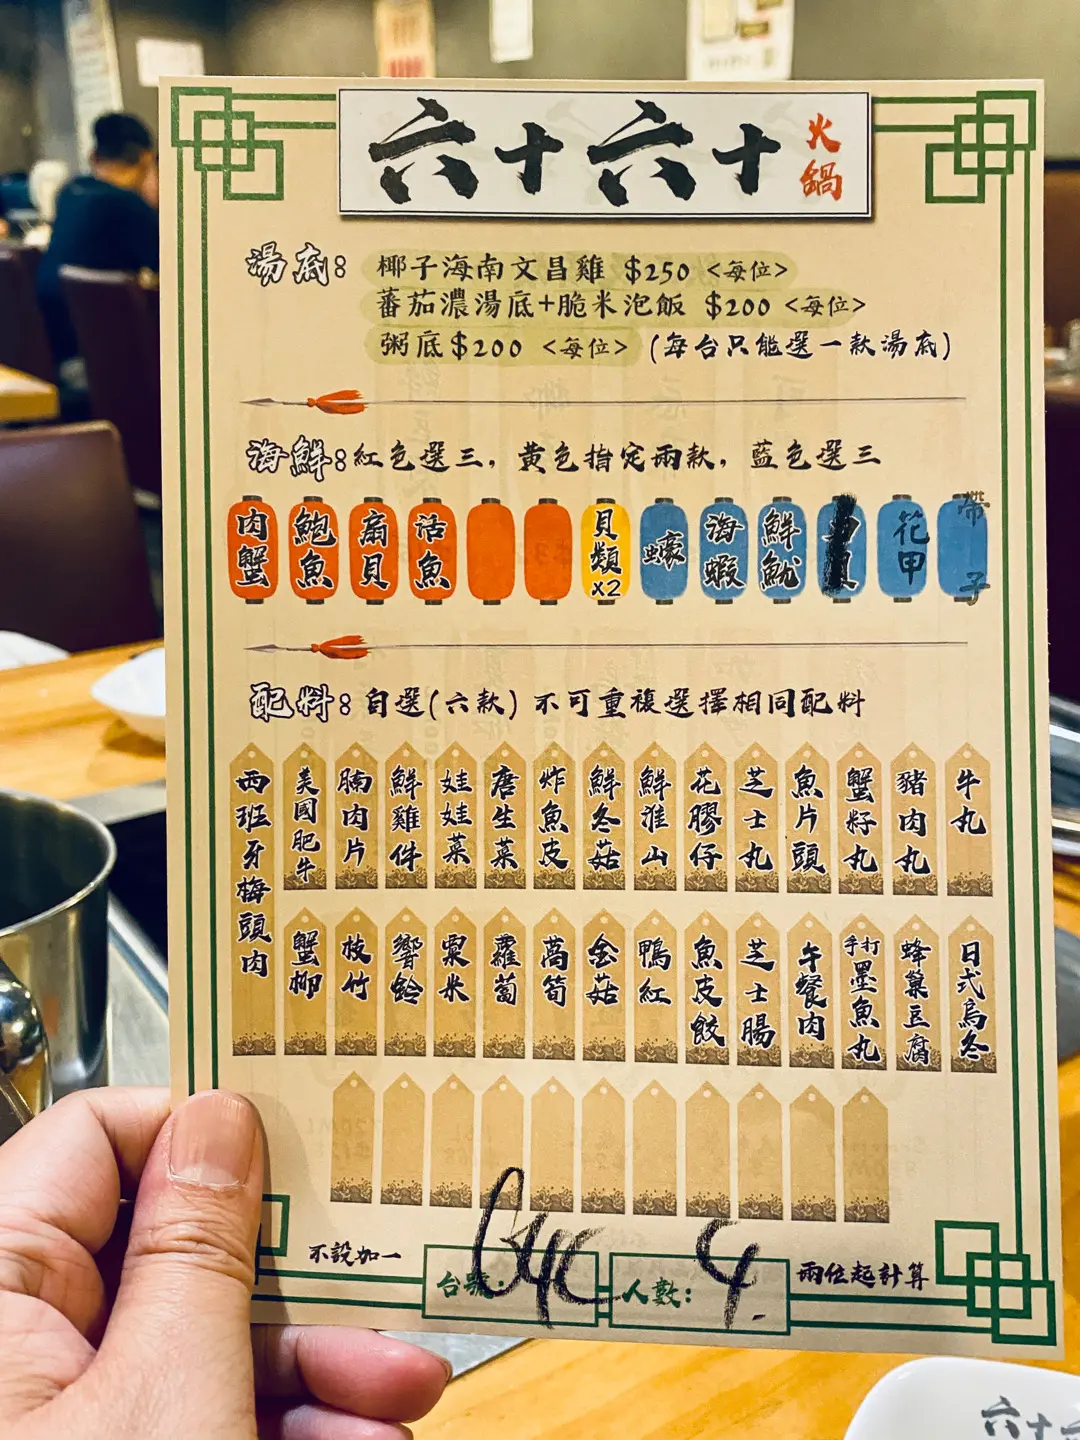 六十六十 火鍋
湯底: 椰子海南文昌雞 $250 <每位>
蕃茄濃湯底+脆米泡飯 $200 <每位>
粥底$200 <每位> (每台只能選一款湯底)
海鮮:紅色選三, 黃色指定兩款, 藍色選三
肉蟹
鮑魚
扇貝
活魚
貝類x2
蠔
海蝦
鮮魷
花甲
帶子
配料: 自選(六款) 不可重複選擇相同配料
西班牙梅頭肉
美國肥牛
腩肉片
鮮雞件
娃娃菜
唐生菜
炸魚皮
鮮冬菇
鮮淮山
花膠仔
芝士丸
魚片頭
蟹籽丸
豬肉丸
牛丸
蟹柳
枝竹
響鈴
粟米
蘿蔔
萵筍
金菇
鴨紅
魚皮餃
芝士腸
午餐肉
手打墨魚丸
蜂巢豆腐
日式烏冬
不設加一
台號:
人數: 4
兩位起計算
六十六